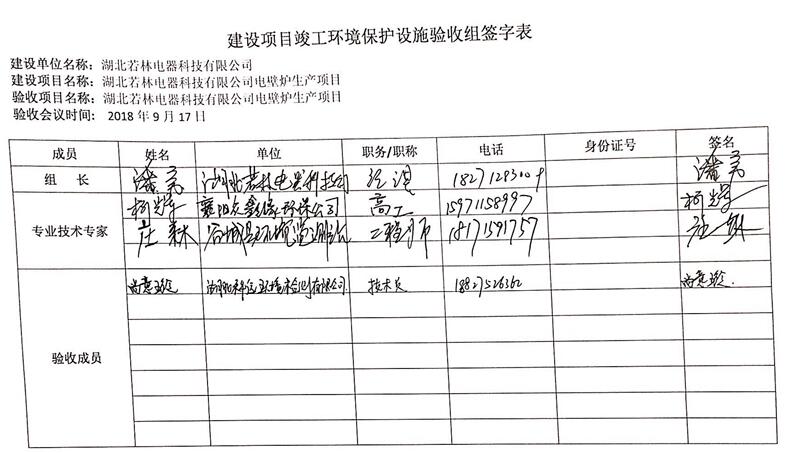 建设项目竣工环境保护设施验收组签字表
建设单位名称：湖北若林电器科技有限公司
建设项目名称：湖北若林电器科技有限公司电壁炉生产项目
验收项目名称：湖北若林电器科技有限公司电壁炉生产项目
验收会议时间： 2018 年 9 月 17 日
成员 姓名 单位 职务/职称 电话 身份证号 签名
组 长 湖北若林电器科技公司 经理
襄阳众鑫缘环保公司 高工 15971158997
专业技术专家 庄 谷城县环境监测站 工程师 18171591757
有限公司 技术员 18827526362
验收成员